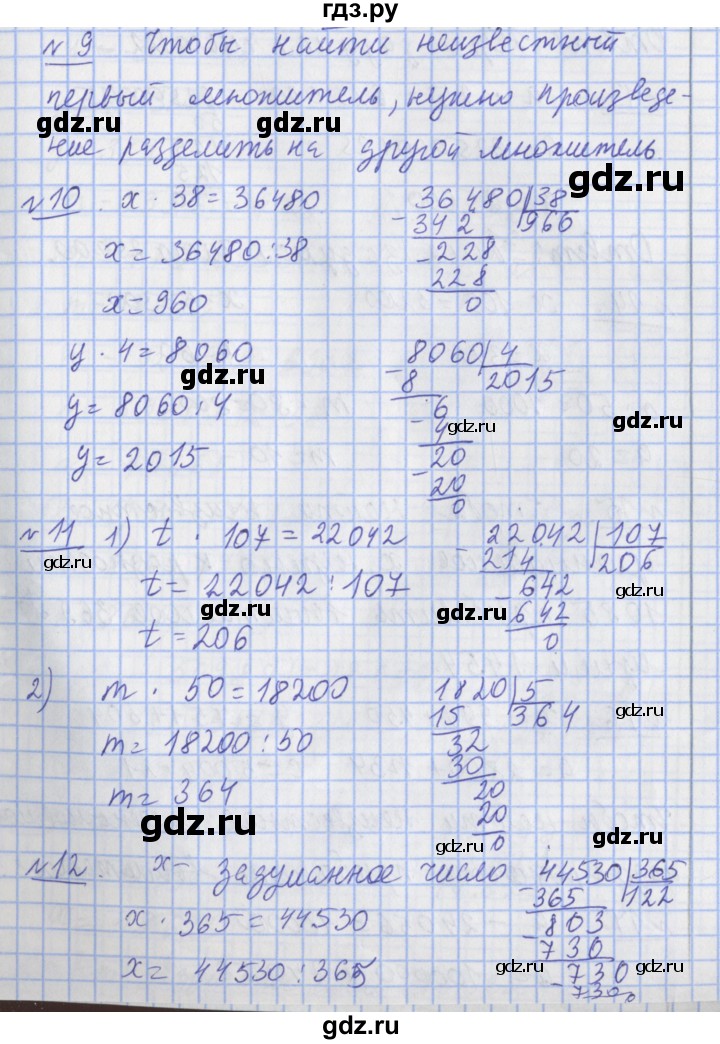 гдз.ру
№ 9 Чтобы найти неизвестный
первый множитель, нужно произведе-
ние разделить на другой множитель
gdz.ru gdz.ru gdz.ru
№10. x · 38 = 36480
x = 36480:38
x = 960
36480 38
- 342 960
- 228
228
0
gdz.ru gdz.ru
y · 4 = 8060
y = 8060:4
y = 2015
8060 4
- 8 2015
6
- 4
20
- 20
0
gdz.ru gdz.ru gdz.ru gdz.ru
№11 1) t · 107 = 22042
t = 22042:107
t = 206
22042 107
- 214 206
- 642
642
0
gdz.ru gdz.ru gdz.ru gdz.ru
2) m · 50 = 18200
m = 18200:50
m = 364
1820 5
15 364
32
30
20
20
0
gdz.ru gdz.ru gdz.ru gdz.ru
№12. x – задуманное число
x · 365 = 44530
x = 44530:365
44530 365
- 365 122
803
- 730
730
- 730
0
gdz.ru gdz.ru
gdz.ru